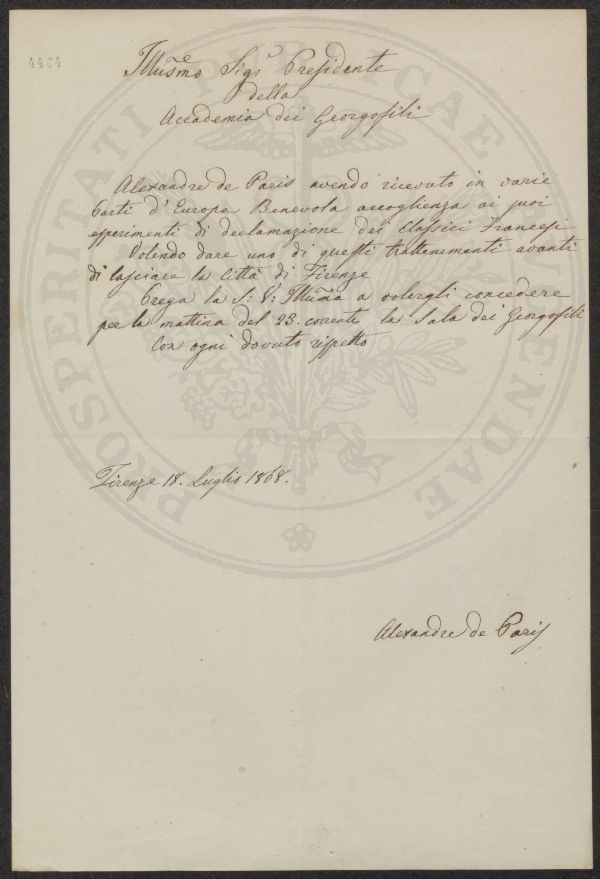 4404
Illus.mo Sig.r Presidente
della
Accademia dei Georgofili
Alexandre de Paris avendo ricevuto in varie
Parti d'Europa Benevola accoglienza ai suoi
esperimenti di declamazione dei Classici Francesi
Volendo dare uno di questi trattenimenti avanti
di lasciare la Città di Firenze
Prega la S: V: Illma a volergli concedere
per la mattina del 23. corrente la Sala dei Georgofili
Con ogni dovuto rispetto
Firenze 18. Luglio 1868.
Alexandre de Paris
PROSPERITATI PUBLICAE AUGENDAE